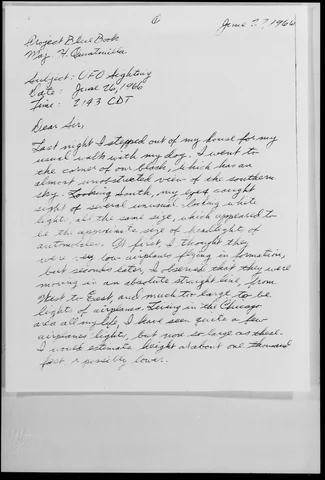 June 27 1966
Project Blue Book
Maj. H. Quintinilla
Subject: UFO Sighting
Date: June 26, 1966
Time: 2143 CDT
Dear Sir,
Last night I stepped out of my house for my
usual walk with my dog. I went to
the corner of our block, which has an
almost unobstructed view of the southern
sky. Looking South, my eyes caught
sight of several unusual looking white
lights all the same size, which appeared to
be the approximate size of headlight of
automobiles. At first, I thought they
were low airplanes flying in formation,
but seconds later I observed that they were
moving in an absolute straight line, from
West to East, and much too large to be
lights of airplanes. Living in the Chicago
area all my life, I have seen quite a few
airplanes lights, but none so large as these.
I would estimate height at about one thousand
feet or possibly lower.